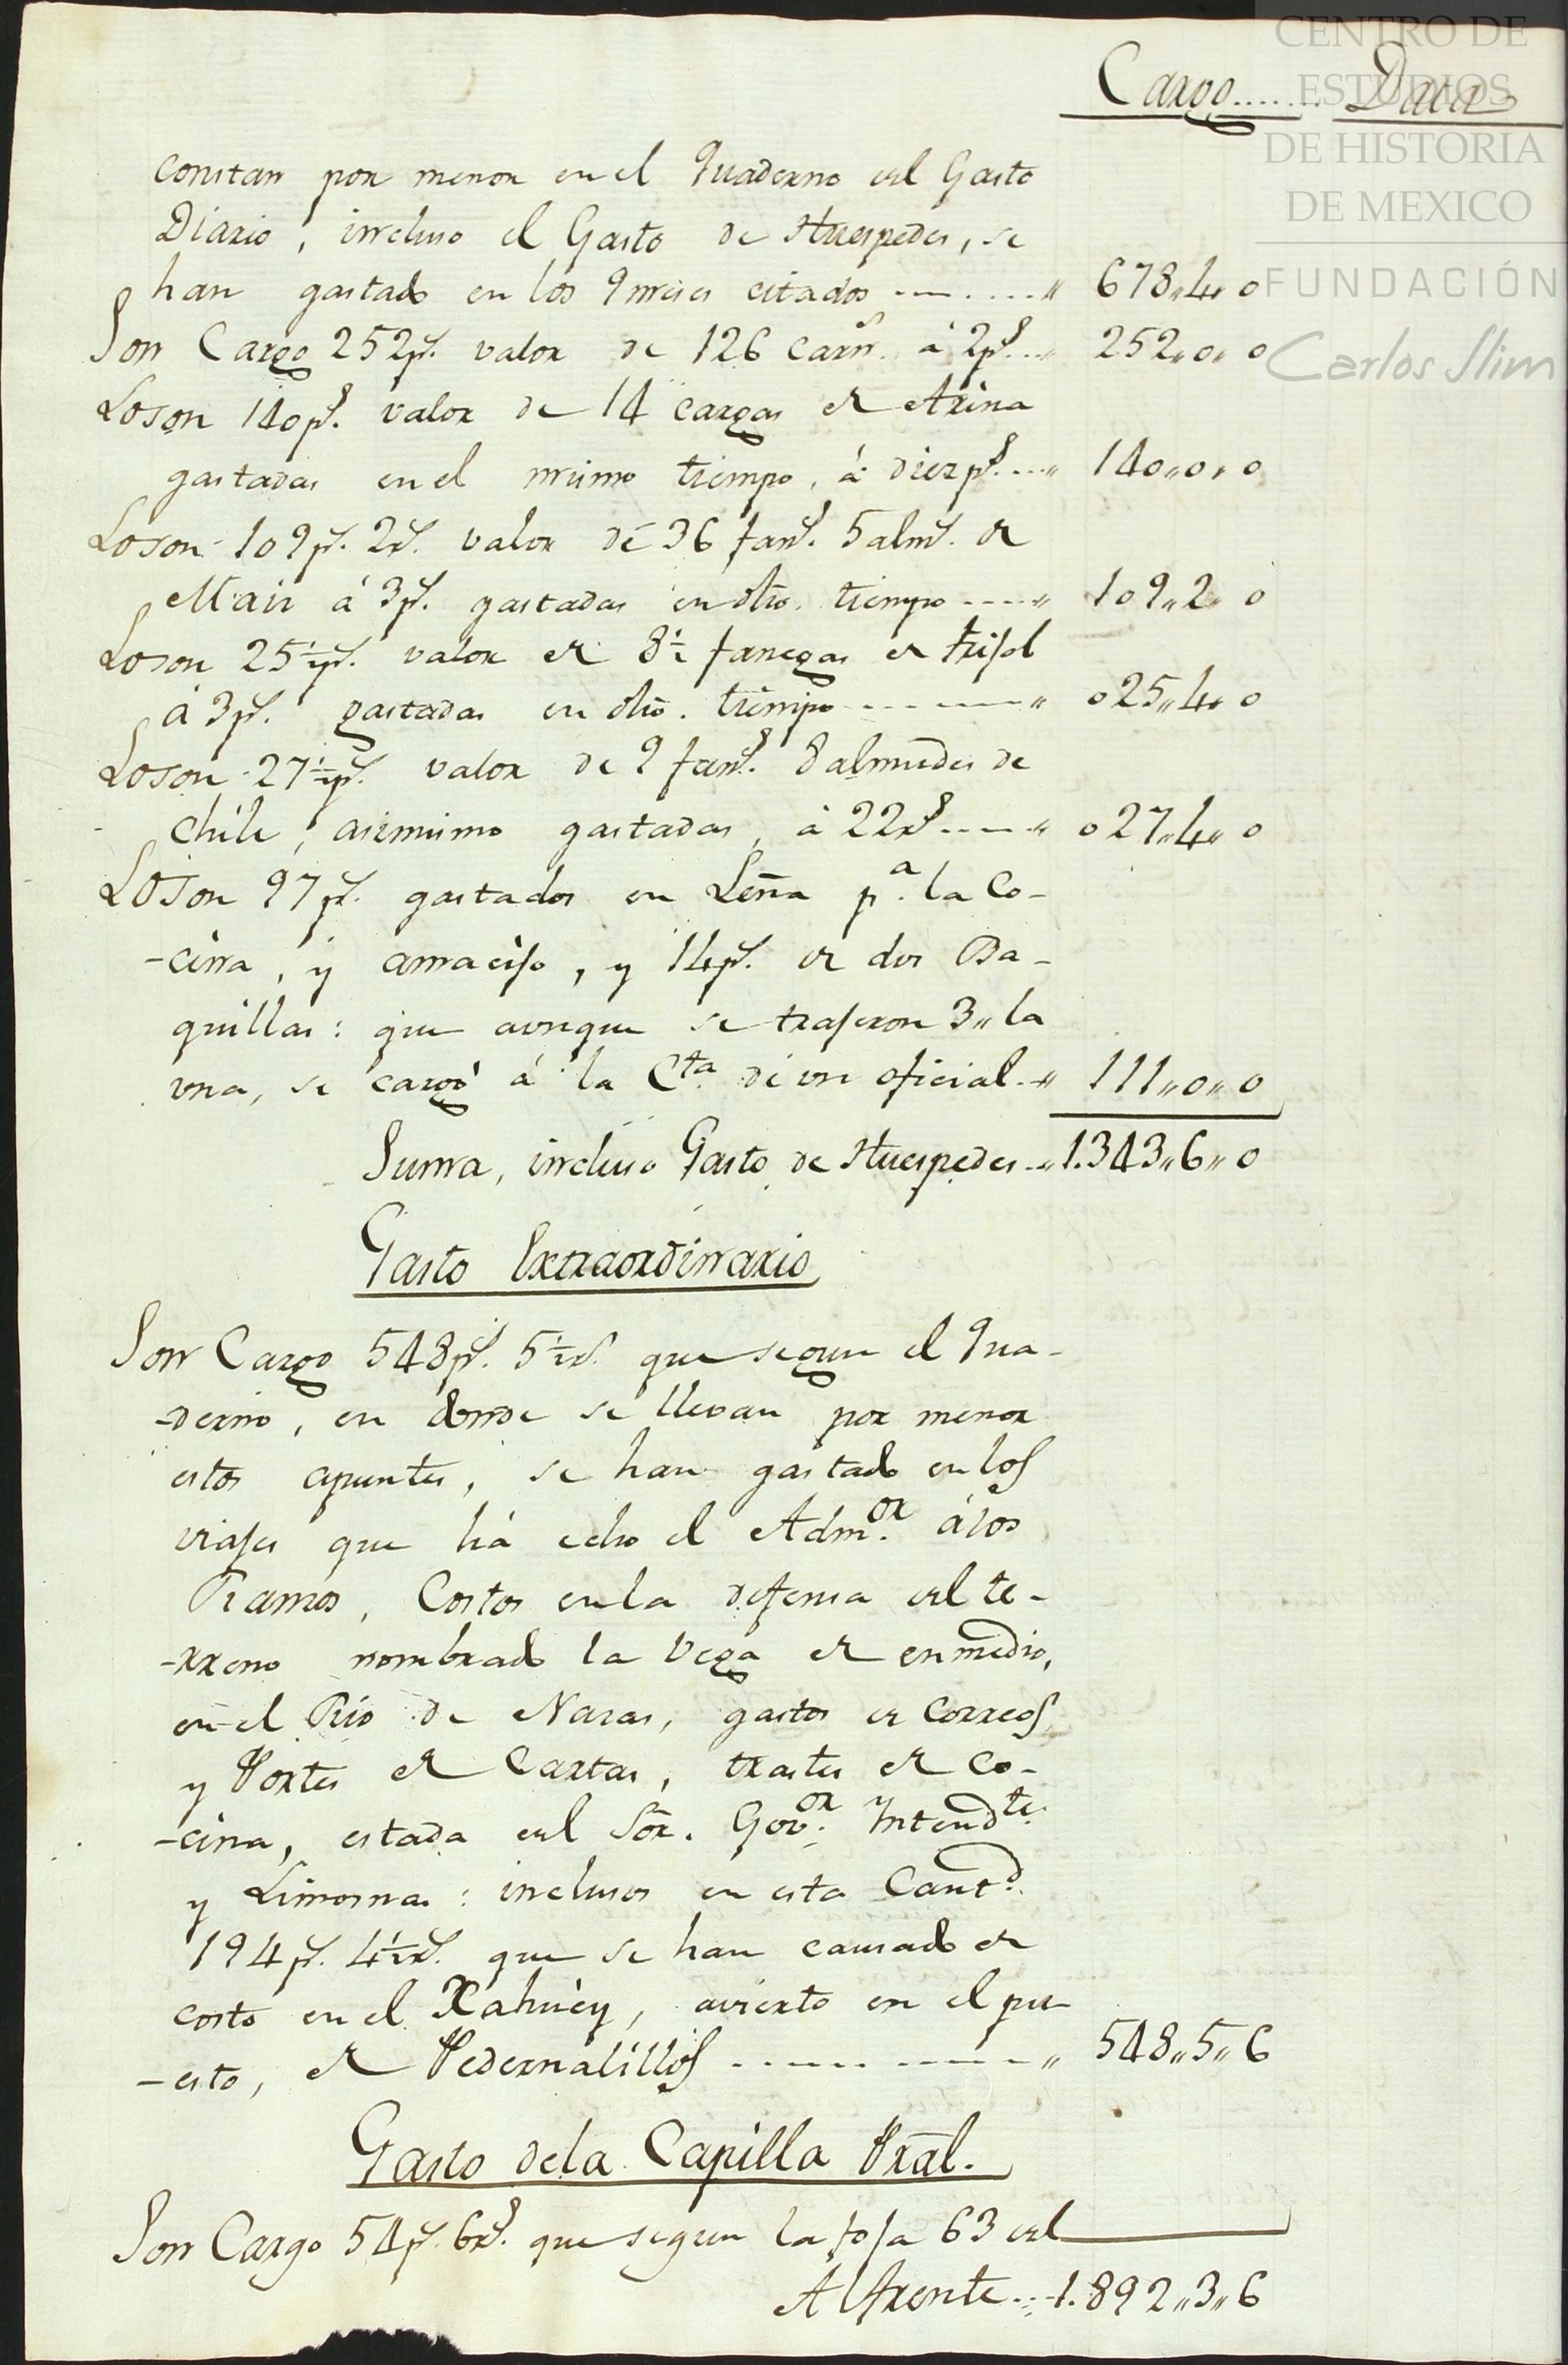 CENTRO DE
ESTUDIOS
DE HISTORIA
DE MEXICO
FUNDACIÓN
Carlos Slim
Cargo....... Data
constan por menor en el Quaderno del Gasto
Diario, incluso el Gasto de Huespedes, se
han gastado en los 9 meses citados ---....-" 678,,4,,0
Son Cargo 252ps. valor de 126 carns. à 2ps..." 252,,0,,0
Loson 140ps. valor de 14 cargas de Arina
gastadas en el mismo tiempo, à diez ps...." 140,,0,,0
Loson 109ps. 2rs. valor de 36 fans. 5 alms. de
Mais á 3ps. gastadas en dho. tiempo ----" 109,,2,,0
Loson 25½ps. valor de 8½ fanegas de frijol
á 3ps. gastadas en dho. tiempo -------" 025,,4,,0
Loson 27½ps. valor de 9 fans. 8 almudes de
chile, asimismo gastadas, à 22rs----" 027,,4,,0
Loson 97ps. gastados en Leña pa. la Co-
-cina, y amacijo, y 14ps. de dos Ba-
quillas: que aunque se trajeron 3,, la
una, se cargó á la Cta. de un oficial.-" 111,,0,,0
Suma, incluso Gasto de Huespedes.." 1.343,,6,,0
Gasto Extraordinario
Son Cargo 548ps. 5½rs. que segun el Qua-
-derno, en donde se llevan por menor
estos apuntes, se han gastado en los
viajes que há echo el Admor. álos
Ramos, Costos en la defensa del te-
-rreno nombrado la Vega de enmedio,
en el Rio de Nazas, gastos de Correos,
y Portes de Cartas, trastes de Co-
-cina, estada del Sor. Govor. Intendte.
y Limosnas: inclusos en esta Cantd.
194ps. 4½rs. que se han causado de
costo en el Xahuey, avierto en el pu-
-esto, de Pedernalillos ----------" 548,,5,,6
Gasto dela Capilla Pral.
Son Cargo 54ps. 6rs. que segun la foja 63 del
Al frente...1.892,,3,,6